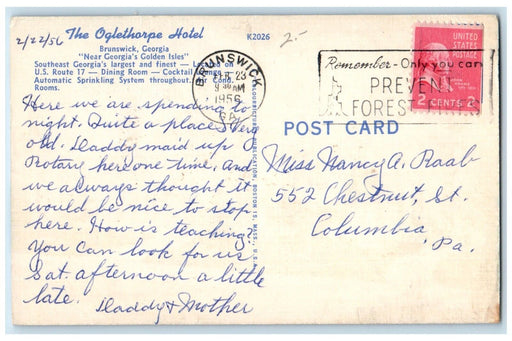 2/22/56
The Oglethorpe Hotel
K2026
2-
Brunswick, Georgia
"Near Georgia's Golden Isles"
Southeast Georgia's largest and finest — Located on
U.S. Route 17 — Dining Room — Cocktail Lounge —
Automatic Sprinkling System throughout. Air Cond.
Rooms.
BRUNSWICK
FEB 23
9 AM
1956
GA.
Remember - Only you can
PREVENT
FOREST
UNITED STATES
POSTAGE
2 CENTS 2
POST CARD
Here we are spending to
night. Quite a place. Very
old. Daddy maid up
Rotary here one time. And
we always thought it
would be nice to stop
here. How is teaching?
You can look for us
Sat. afternoon a little
late. Daddy & Mother
Miss Nancy A. Raab
552 Chestnut, St.
Columbia
Pa.